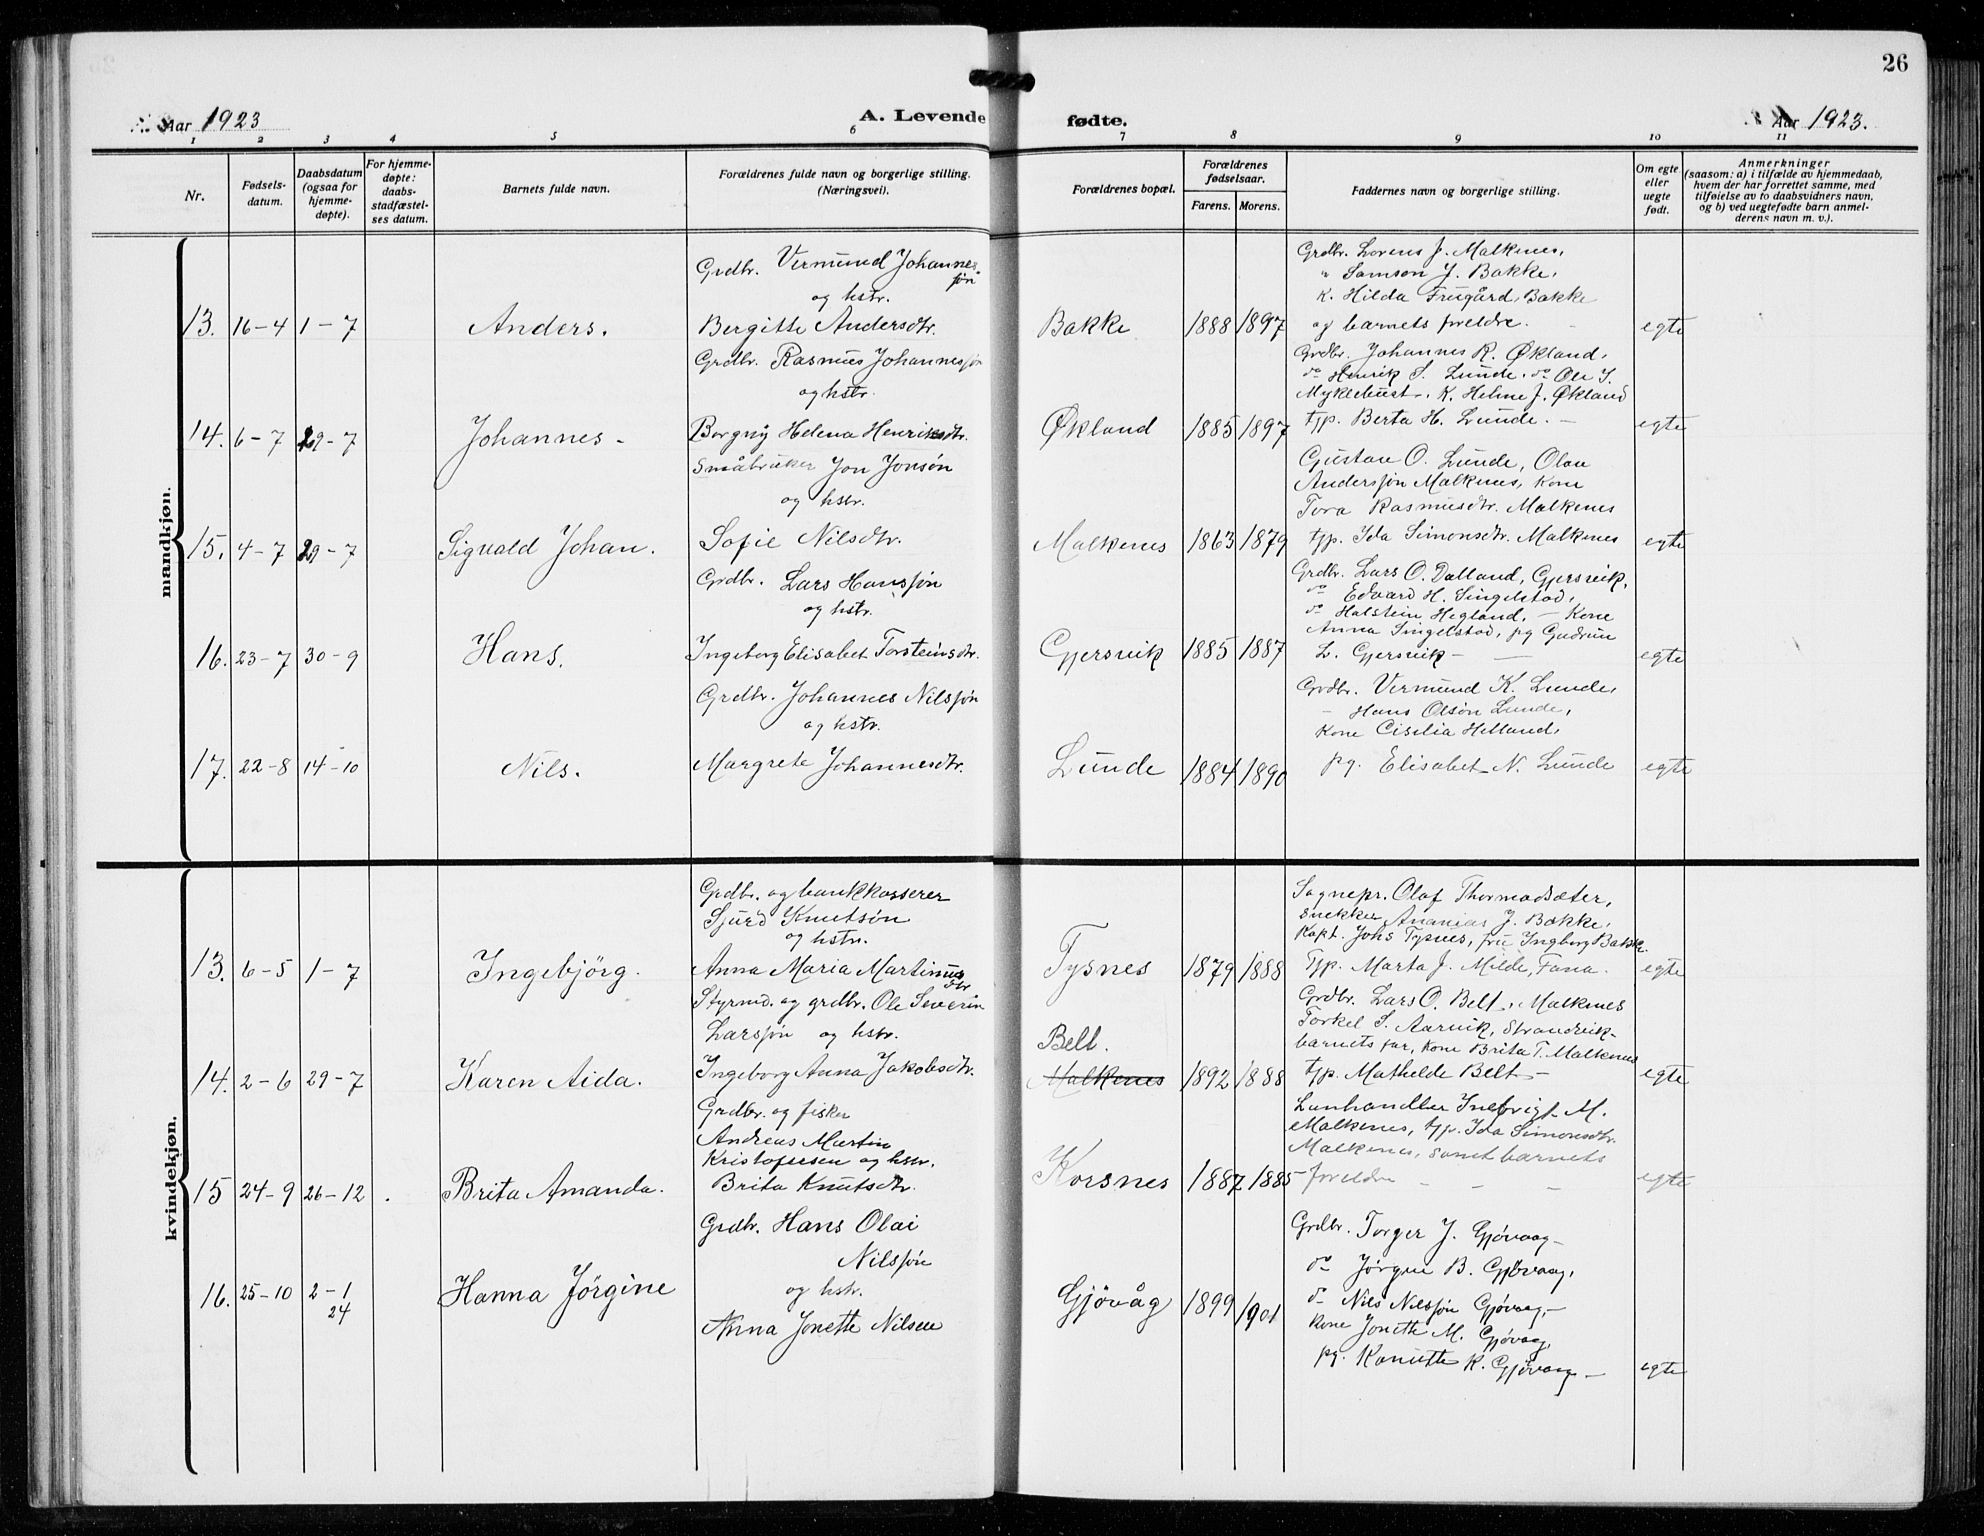 26
Aar 1923
A. Levende fødte.
Aar 1923.
1 2 3 4 5 6 7 8 9 10 11
Nr.
Fødsels-
datum.
Daabsdatum
(ogsaa for
hjemme-
døpte).
For hjemme-
døpte:
daabs-
stadfæstel-
ses datum.
Barnets fulde navn.
Forældrenes fulde navn og borgerlige stilling.
(Næringsvei).
Forældrenes bopæl.
Forældrenes
fødselsaar.
Farens. Morens.
Faddernes navn og borgerlige stilling.
Om egte
eller
uegte
født.
Anmerkninger
(saasom: a) i tilfælde av hjemmedaab,
hvem der har forrettet samme, med
tilføielse av to daabsvidners navn,
og b) ved uegtefødte barn anmel-
derens navn m. v.).
mandkjøn.
13. 16-4 1-7 Anders.
Grdbr. Vermund Johannes-
søn
og hstr.
Bergitte Andersdtr.
Bakke 1888 1897
Grdbr. Lorens J. Malkenes,
" Samson J. Bakke,
K. Hilda Frugård, Bakke
og barnets foreldre. -
egte
14. 6-7 29-7 Johannes -
Grdbr. Rasmus Johannessøn
og hstr.
Borgny Helena Henriksdtr.
Økland 1885 1897
Grdbr. Johannes R. Økland,
do Henrik S. Lunde, do Ole J.
Myklebust, K. Helme J. Økland
tjp. Berta H. Lunde. -
egte
15. 4-7 29-7 Sigvald Johan.
Småbruker Jon Jonsøn
og hstr.
Sofie Nilsdtr.
Malkenes 1863 1879
Gustav O. Lunde, Olav
Anderssøn Malkenes, Kone
Tora Rasmusdtr. Malkenes
tjp. Ida Simonsdtr. Malkenes
egte
16. 23-7 30-9 Hans.
Grdbr. Lars Hanssøn
og hstr.
Ingeborg Elisabet Torsteinsdtr.
Gjersvik 1885 1887
Grdbr. Lars O. Dalland, Gjersvik,
do Edvard H. Singelstad,
do Halstein Hegland, - Kone
Anna Singelstad, pg Gudrun
L. Gjersvik -
egte
17. 22-8 14-10 Nils.
Grdbr. Johannes Nilssøn
og hstr.
Margrete Johannesdtr.
Lunde 1884 1890
Grdbr. Vermund K. Lunde,
- Hans Olsøn Lunde,
Kone Cisilia Helland,
pg. Elisabet N. Lunde
egte
kvindekjøn.
13. 6-5 1-7 Ingebjörg.
Grdbr. og bankkasserer
Sjurd Knutsøn
og hstr.
Anna Maria Martinus
dtr
Tysnes 1879 1888
Sognepr. Olaf Thormodsæter,
snekker Ananias J. Bakke,
Kapt. Johs Tysnes, fru Ingborg Bakke
Tjp. Marta J. Milde, Fana.
egte
14. 2-6 29-7 Karen Aida.
Styrmd. og grdbr. Ole Severin
Larssøn og hstr.
Ingeborg Anna Jakobsdtr.
Belt.
Malkenes 1892 1888
Grdbr. Lars O. Belt, Malkenes
Torkel S. Aarvik, Strandvik-
barnets far, Kone Brita T. Malkenes
tjp. Mathelde Belt -
egte
15 24-9 26-12 . Brita Amanda.
Grdbr. og fisker
Andreas Martin
Kristofersen og hstr.
Brita Knutsdtr.
Korsnes 1887 1885
M.
Malkenes, tjp. Ida Simonsdtr.
Malkenes, samt barnets
foreldre - - -
egte
16. 25-10 2-1
24
Hanna Jörgine
Grdbr. Hans Olai
Nilssøn
og hstr.
Anna Jonette Nilsen
Gjövåg 1899 1901
Grdbr. Torger J. Gjövaag -
do Jörgen B. Gjövaag,
do Nils Nilssøn Gjövaag, -
Kone Jonette M. Gjövaag,
pg. Kanutte K. Gjövaag -
egte